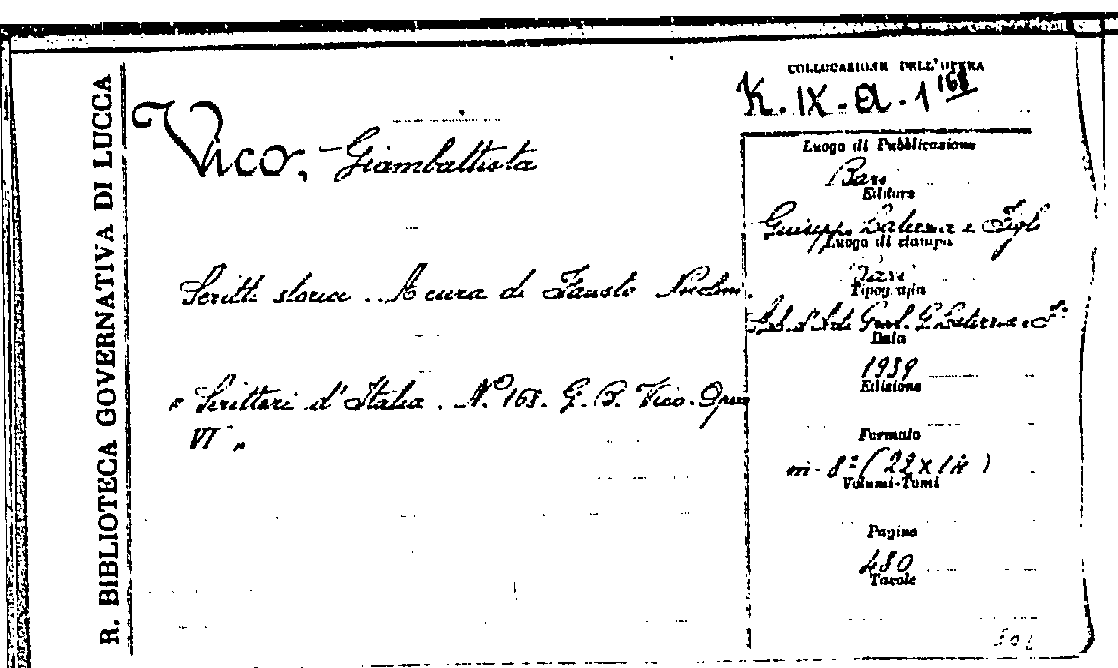 R. BIBLIOTECA GOVERNATIVA DI LUCCA
COLLOCAZIONE DELL'OPERA
K. IX - A - 1 168
Vico, Giambattista
Scritti storici. A cura di Fausto Nicolini.
« Scrittori d'Italia. N.° 168. G. B. Vico. Opere
VI »
Luogo di Pubblicazione
Bari
Editore
Giuseppe Laterza e Figli
Luogo di stampa
Bari
Tipografia
G. Laterza e F.
Data
1939
Edizione
Formato
in-8° (22 x
Volumi-Tomi
Pagine
480
Tavole